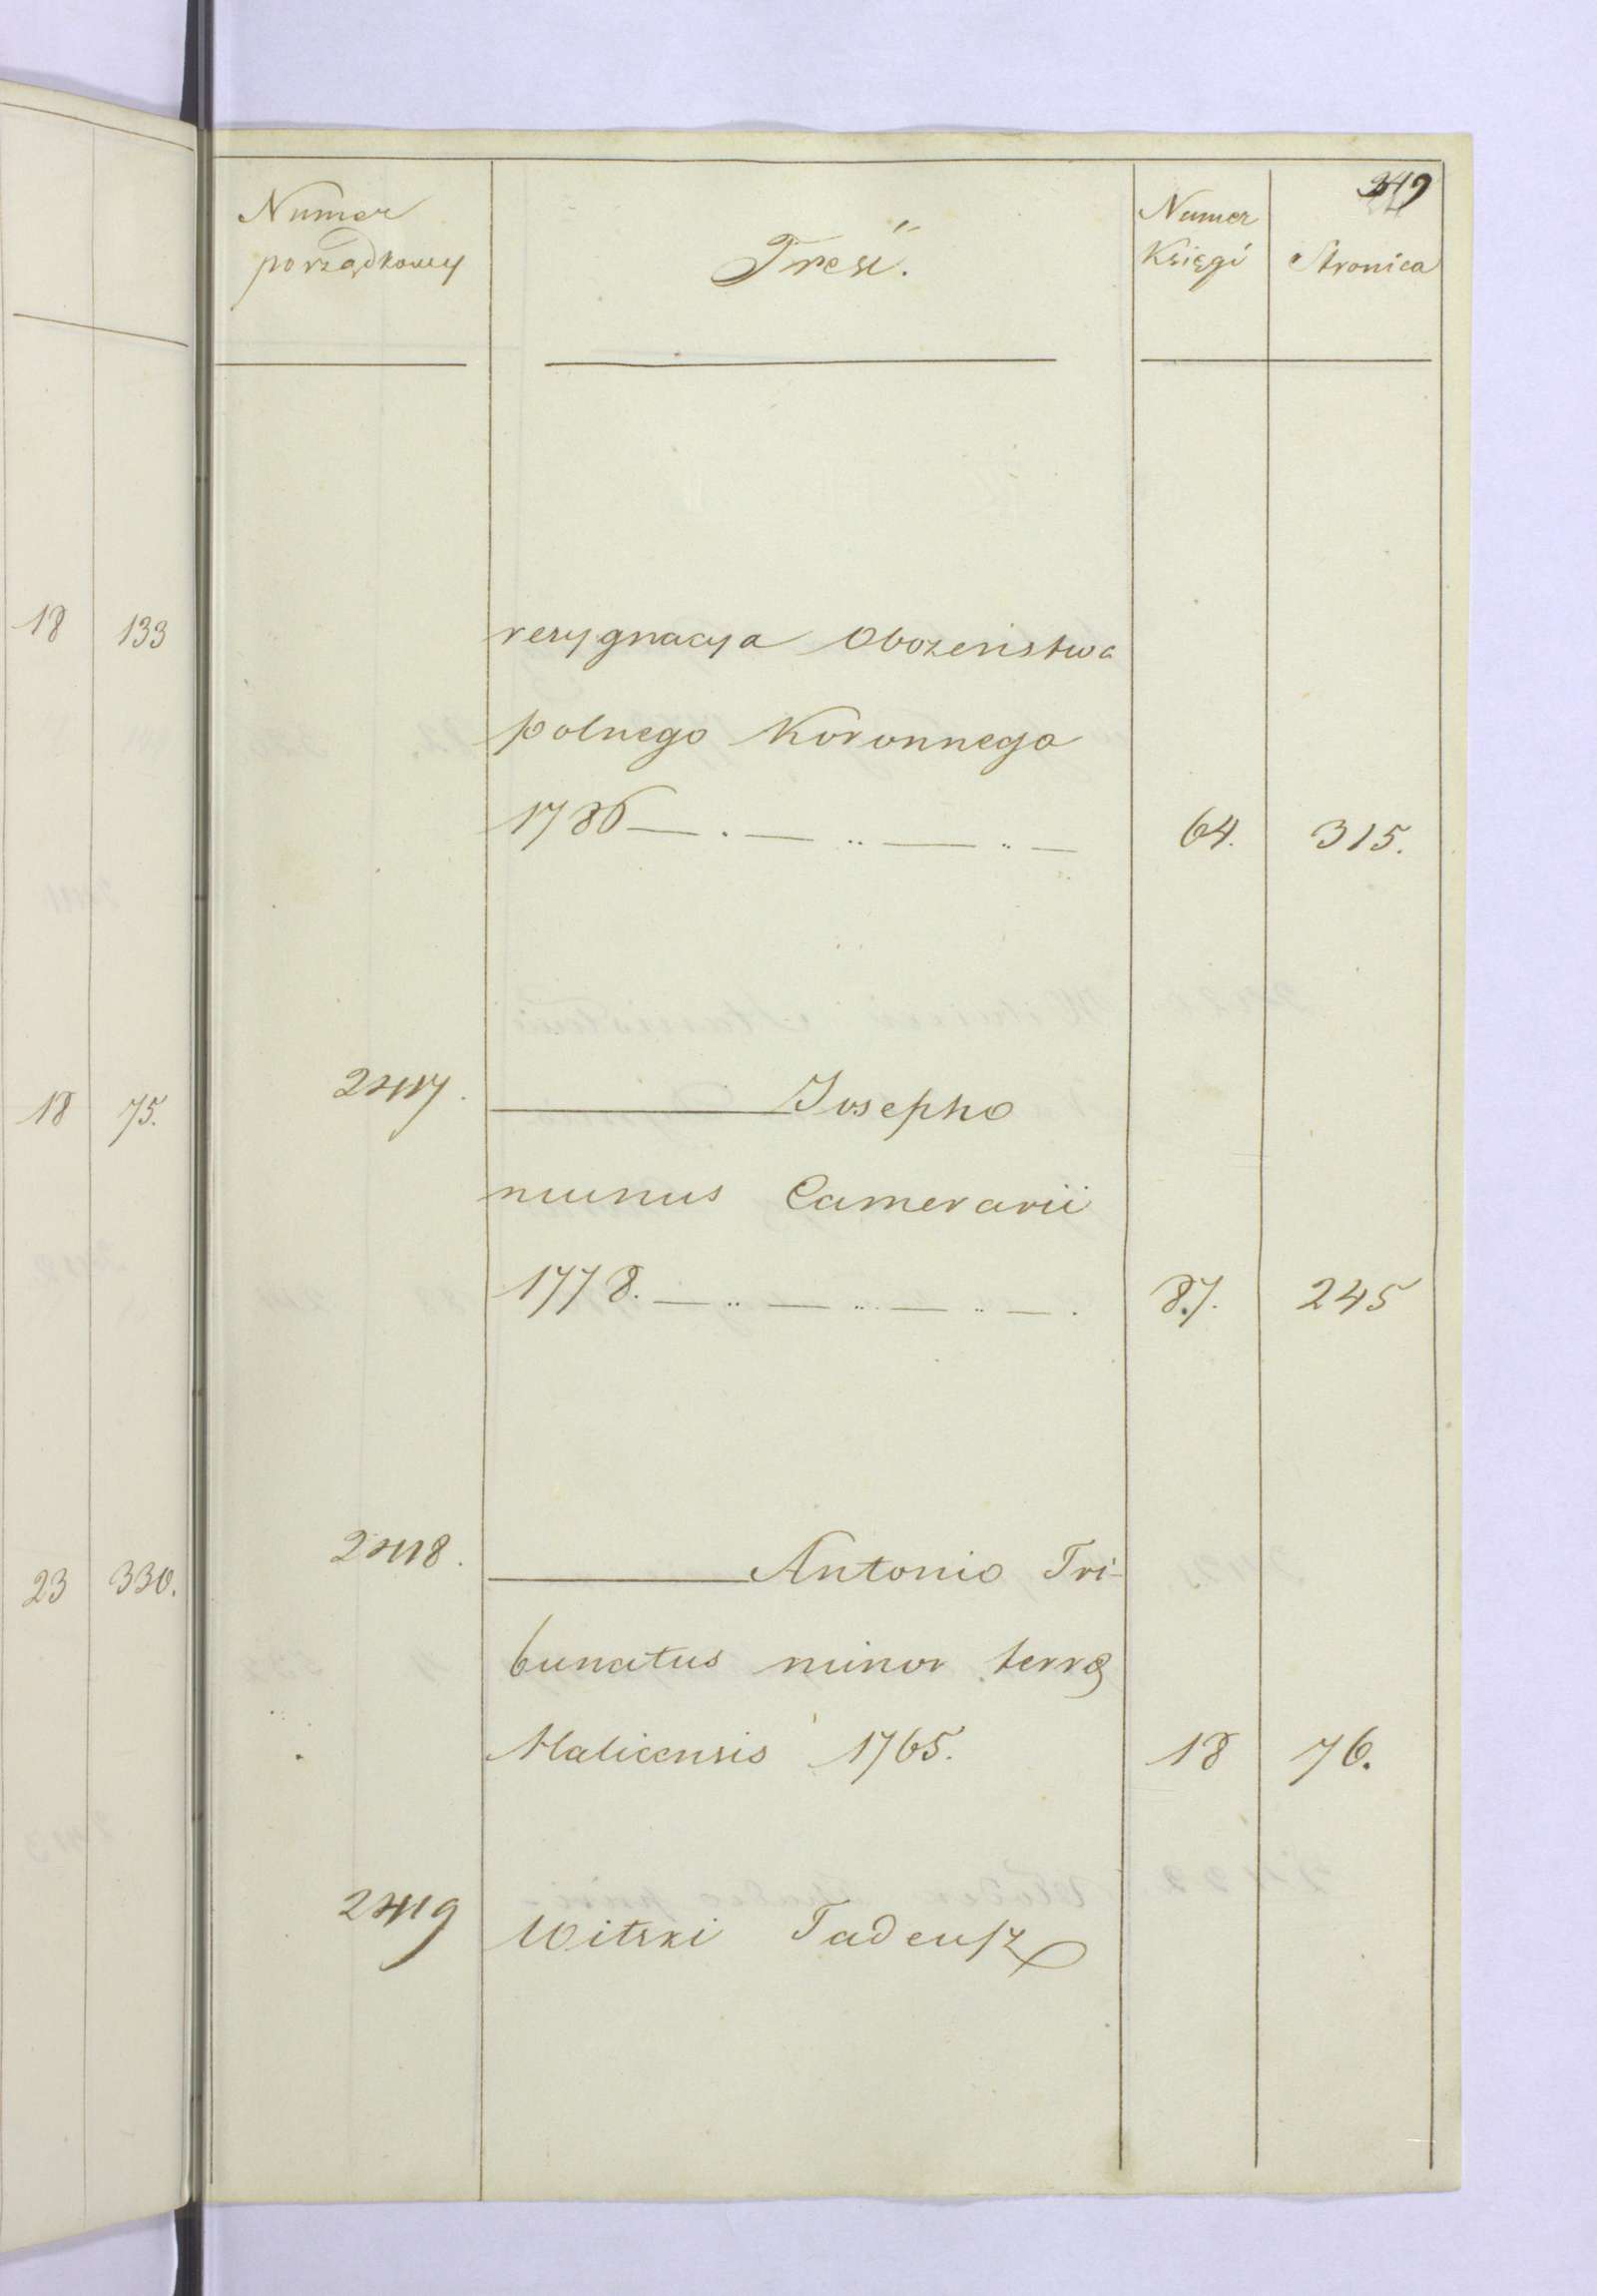 18 133
18 75.
23 330.
349
Numer porządkowy
Treść.
Numer Księgi
Stronica
rezygnacya Oboźeństwa
polnego Koronnego
1786 — . — .. — .. — 64. 315.
2417. ——— Josepho
munus Camerarii
1778. — .. — .. — .. — . 87. 245
2418. ——— Antonio Tri-
bunatus minor terrę
Halicensis 1765. 18 76.
2419 Witski Tadeusz